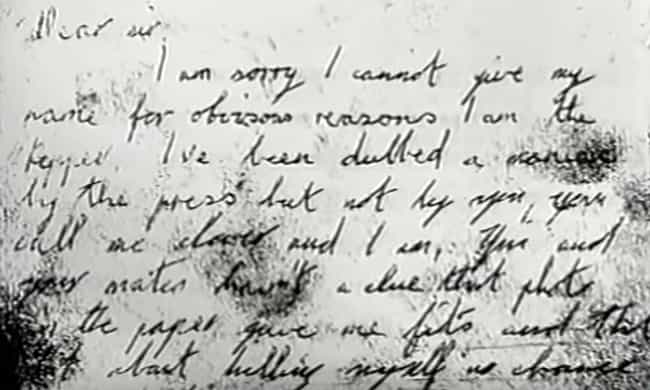 Dear sir,
I am sorry I cannot give my
name for obvisos reasons I am the
Ripper. I've been dubbed a maniac
by the press but not by you, you
call me clever and I am. You and
your mates havn't a clue that photo
in the paper gave me fits and that
bit about killing myself no chance